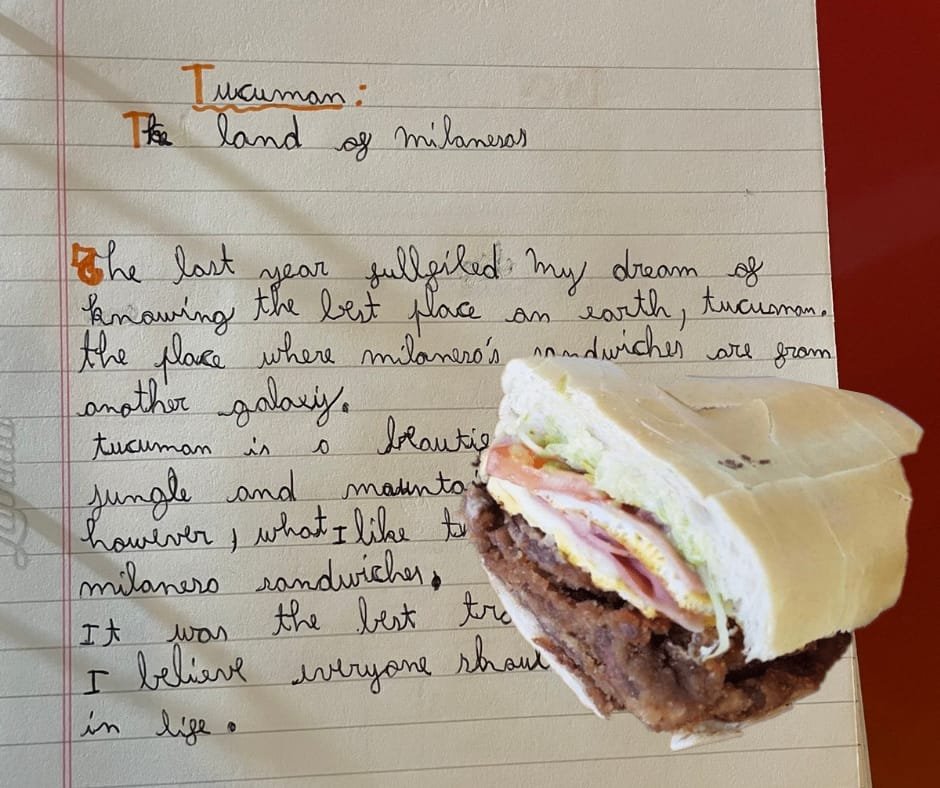 Tucuman:
The land of milanesas
The last year fullfiled my dream of
knowing the best place on earth, tucuman.
the place where milanesa's sandwiches are from
another galaxy.
tucuman is a
jungle and
however, what I like
milanesa sandwiches.
It was the best
I believe everyone
in life.